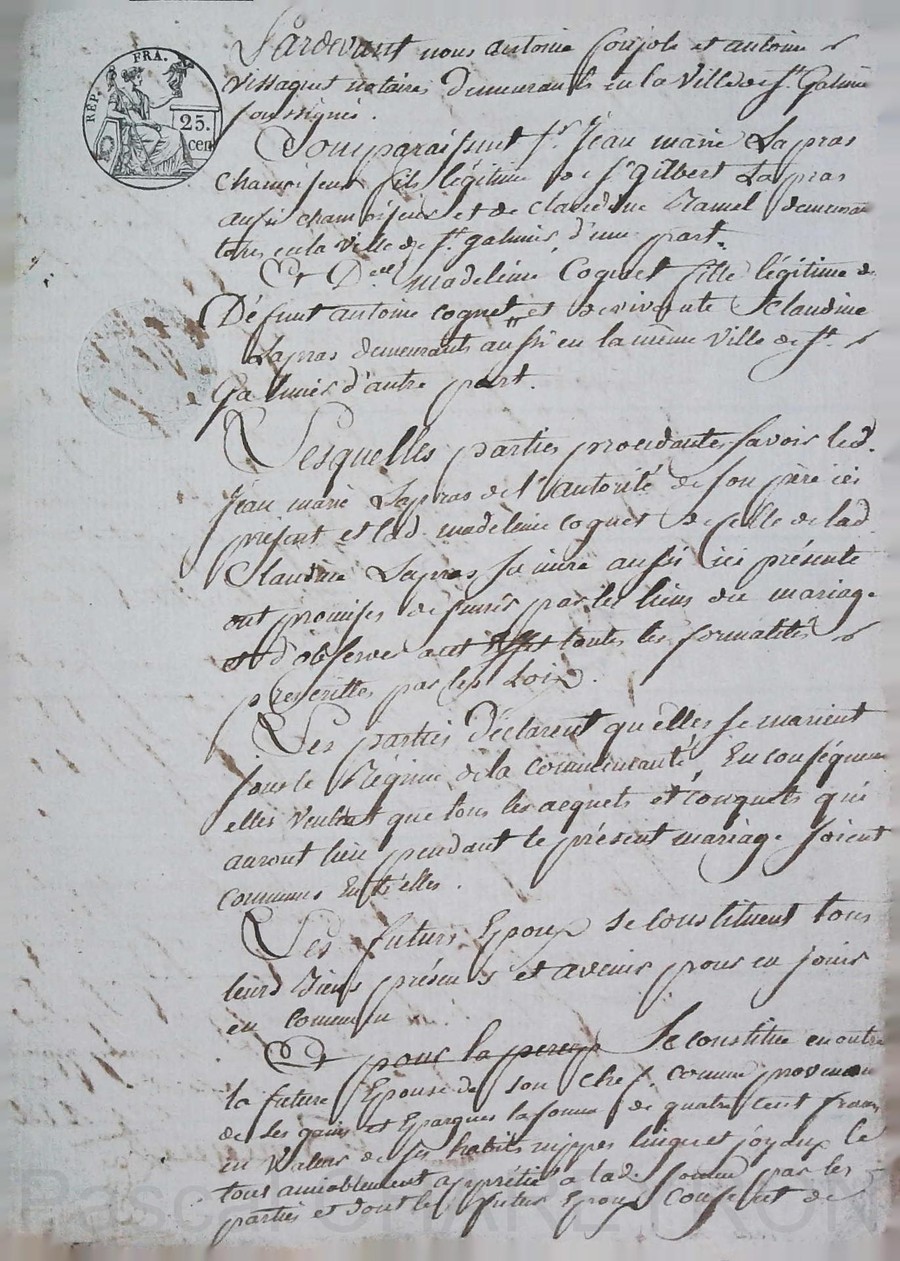 RÉP. FRA.
25.
cen
Pardevant nous antoine Soujols et antoine
Vissaguet notaires demeurants en la Ville de St. Galmier
soussignés.
Comparaissent sr. Jean marie Lapras
chamoiseur fils légitime de sr Gilbert Lapras
aussi chamoiseur et de claudine Ramel demeuran
tere en la Ville de St. galmier, d'une part.
Et Delle madeleine Coquet fille légitime de
Défunt antoine coquet et de vivante Claudine
Lapras demeurants aussi en la même Ville de St.
Galmier d'autre part.
Lesquelles parties procédantes savoir led.
Jean marie Lapras de l'autorité de son père ici
présent et lad. madeleine coquet de celle de lad.
Claudine Lapras sa mère aussi ici présente
ont promises de s'unir par les liens du mariage
et d'observer a cet effet toutes les formalités
prescrittes par les Loix.
Les parties déclarent qu'elles se marient
sous le Régime de la communauté En conséquence
elles veulent que tous les acquets et conquets qui
auront lieu pendant le présent mariage soient
communs Entr'elles.
Les futurs Epoux se constituent tous
leurs Biens présents et avenir pour en jouir
en commun
Et pour la perce Se constitue en outre
la future Epouse de son chef comme provenan
de ses gains et Epargnes la somme de quatre cent francs
en Valeur de ses habits nippes linges et joyaux le
tout amiablement apprétié a lade. somme par les
parties et dont le futur Epoux consent de